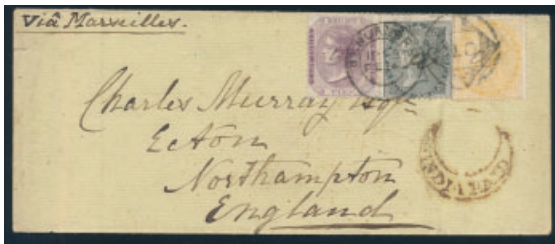 Viâ Marseilles.
Charles Murray Esqre
Ecton
Northampton
England
INDIA PAID